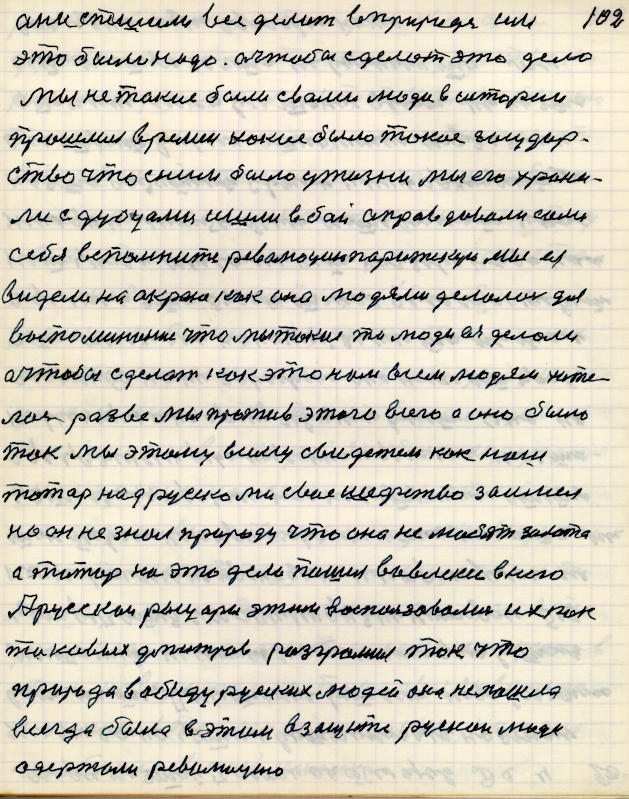 они спешили все делат в природе им 102
это было надо. а чтобы сделат это дело
мы не такие были с вами люди в истории
прошлия времени какие было токое государ-
ство что с ним было у жизни мы его храни-
ли с дубцами ишли в бой оправдовали сами
себя вспомните революцию парижскую мы ея
видели на екране как она людями делалас для
воспоминания что мы такие то люди ея делали
а чтобы сделат как это нам всем людям хоте-
лос разве мы против этого всего а оно было
так мы этому всему свидетели как наш
тотар над русскоми свое шефство занимел
но он не знал природу что она не любят золота
а татар на это дело пашел вовлеки в него
А русския рыцари этим воспользовалис их как
таковых дмитров разгромил ток что
природа в обиду руских людей она не пошла
всегда была в этим в защите рускои люди
одержали революцию